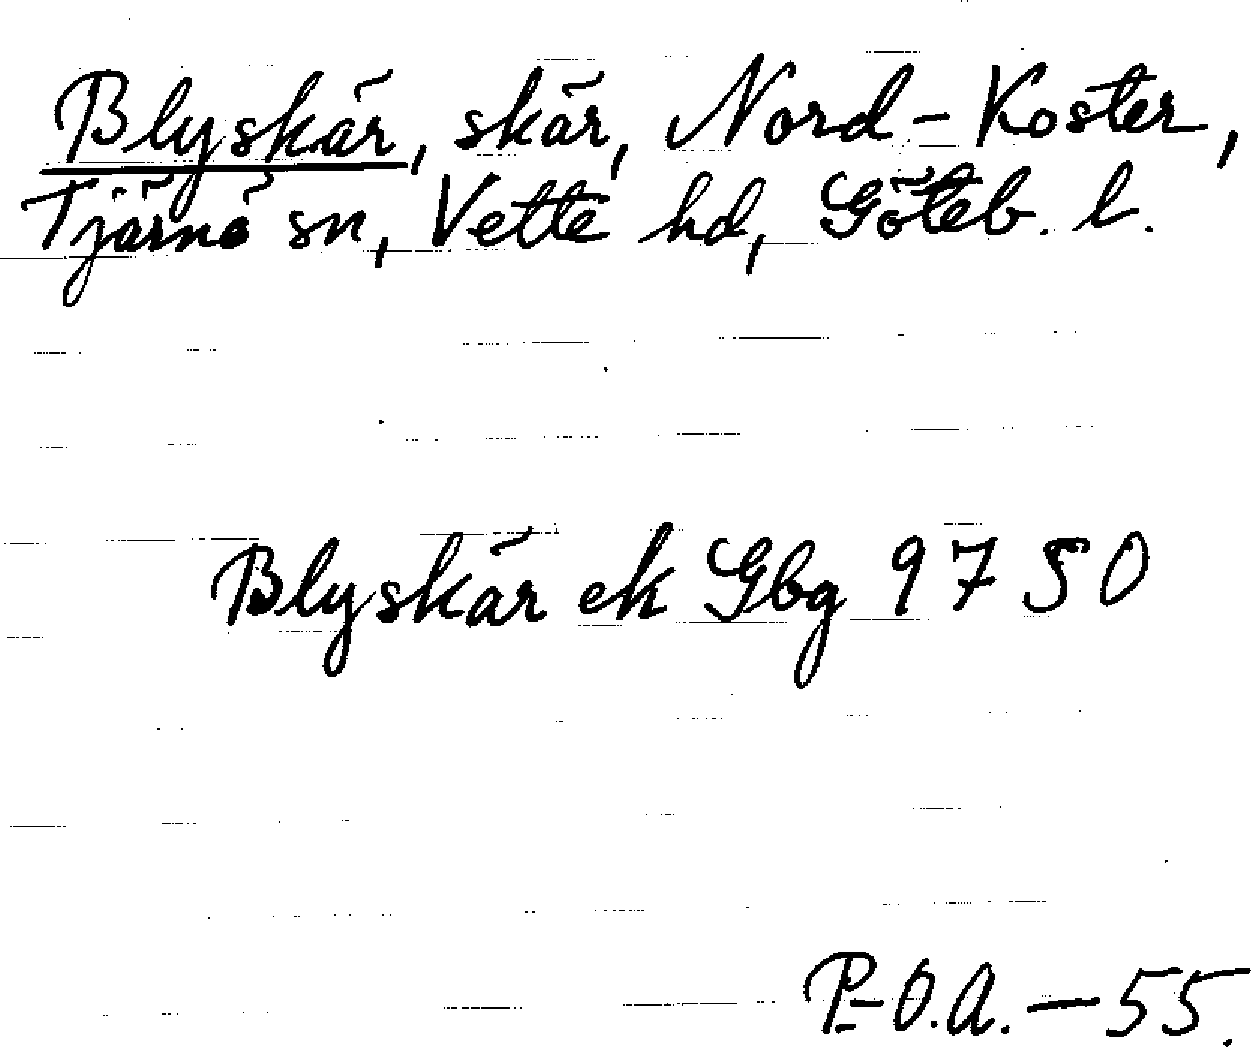 Blyskär, skär, Nord-Koster,
Tjärnö sn, Vette hd, Göteb. l.
Blyskär ek Gbg 9750
P-O.A. – 55.